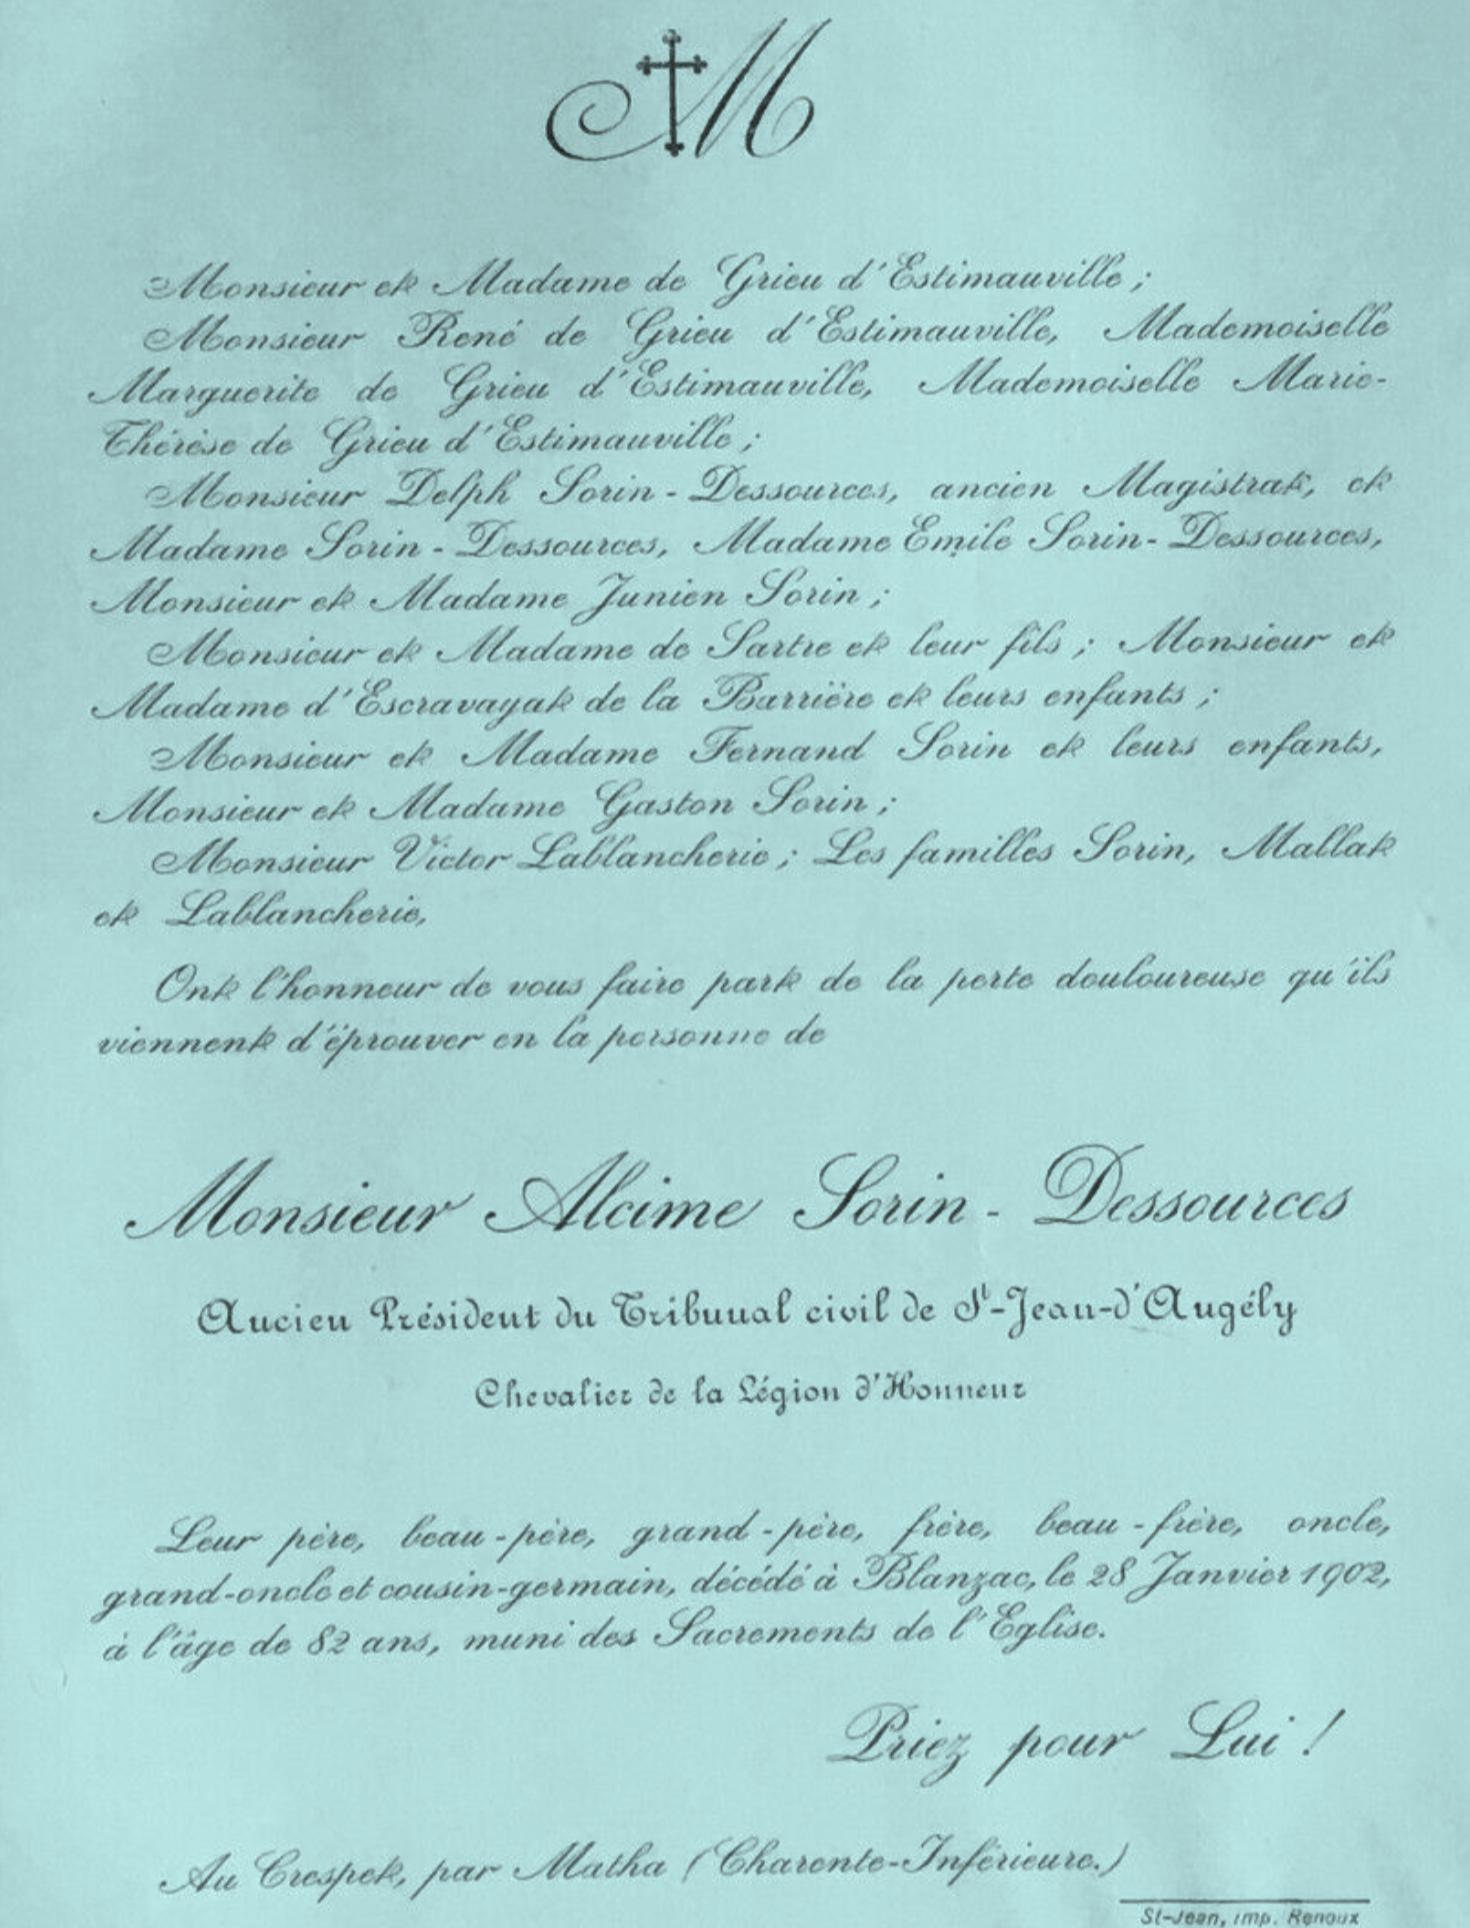 M
Monsieur et Madame de Grieu d'Estimauville ;
Monsieur René de Grieu d'Estimauville, Mademoiselle
Marguerite de Grieu d'Estimauville, Mademoiselle Marie-
Thérèse de Grieu d'Estimauville ;
Monsieur Delph Sorin - Dessources, ancien Magistrat, et
Madame Sorin - Dessources, Madame Emile Sorin - Dessources,
Monsieur et Madame Junien Sorin ;
Monsieur et Madame de Sartre et leur fils ; Monsieur et
Madame d'Escravayat de la Barrière et leurs enfants ;
Monsieur et Madame Fernand Sorin et leurs enfants,
Monsieur et Madame Gaston Sorin ;
Monsieur Victor Lablancherie ; Les familles Sorin, Mallat
et Lablancherie,
Ont l'honneur de vous faire part de la perte douloureuse qu'ils
viennent d'éprouver en la personne de
Monsieur Alcime Sorin - Dessources
Ancien Président du Tribunal civil de St-Jean-d'Angély
Chevalier de la Légion d'Honneur
Leur père, beau-père, grand-père, frère, beau-frère, oncle,
grand-oncle et cousin-germain, décédé à Blanzac, le 28 Janvier 1902,
à l'âge de 82 ans, muni des Sacrements de l'Eglise.
Priez pour Lui !
Au Crespet, par Matha (Charente-Inférieure.)
St-Jean, imp. Renoux